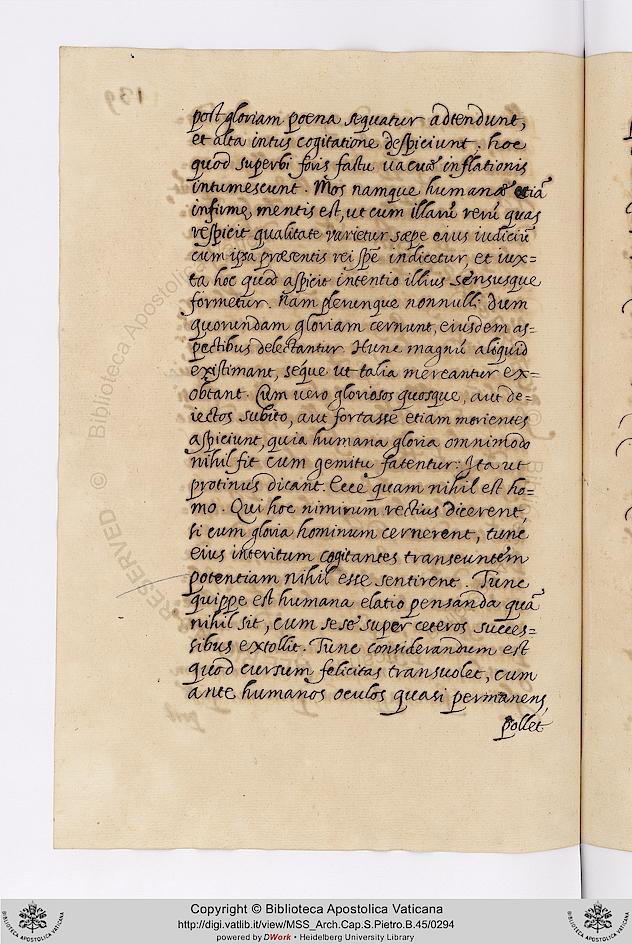 139
post gloriam poena sequatur adtendunt,
et alta intus cogitatione despiciunt. hoc
quod superbi foris fastu vacuæ inflationis
intumescunt. Mos namque humanæ etiā
infirmę mentis est, ut cum illarū rerū quas
respicit qualitate varietur sæpe eius iudiciū
cum ipsa præsentis rei spē indicetur et iux=
ta hoc quod aspicit intentio illius sensusque
formetur. Nam plerunque nonnulli dum
quorundam gloriam cernunt, eiusdem as=
pectibus delectantur. Hunc magnū aliquid
existimant, seque ut talia mereantur ex=
obtant. Cum vero gloriosos quosque, aut de=
iectos subito, aut fortasse etiam morientes
aspiciunt, quia humana gloria omnimodo
nihil sit cum gemitu fatentur: Ita ut
protinus dicant. Ecce quam nihil est ho=
mo. Qui hoc nimirum rectius dicerent,
si cum gloria hominum cernerent, tunc
eius interitum cogitantes transeuntem
potentiam nihil esse sentirent. Tunc
quippe est humana elatio pensanda quā
nihil sit, cum sese super ceteros succes=
sibus extollit. Tunc considerandum est
quod cursum felicitas transvolet, cum
ante humanos oculos quasi permanens
pollet
© Biblioteca Apostolica
RESERVED
Copyright © Biblioteca Apostolica Vaticana
http://digi.vatlib.it/view/MSS_Arch.Cap.S.Pietro.B.45/0294
powered by DWork • Heidelberg University Library
BIBLIOTECA APOSTOLICA VATICANA
BIBLIOTECA APOSTOLICA VATICANA